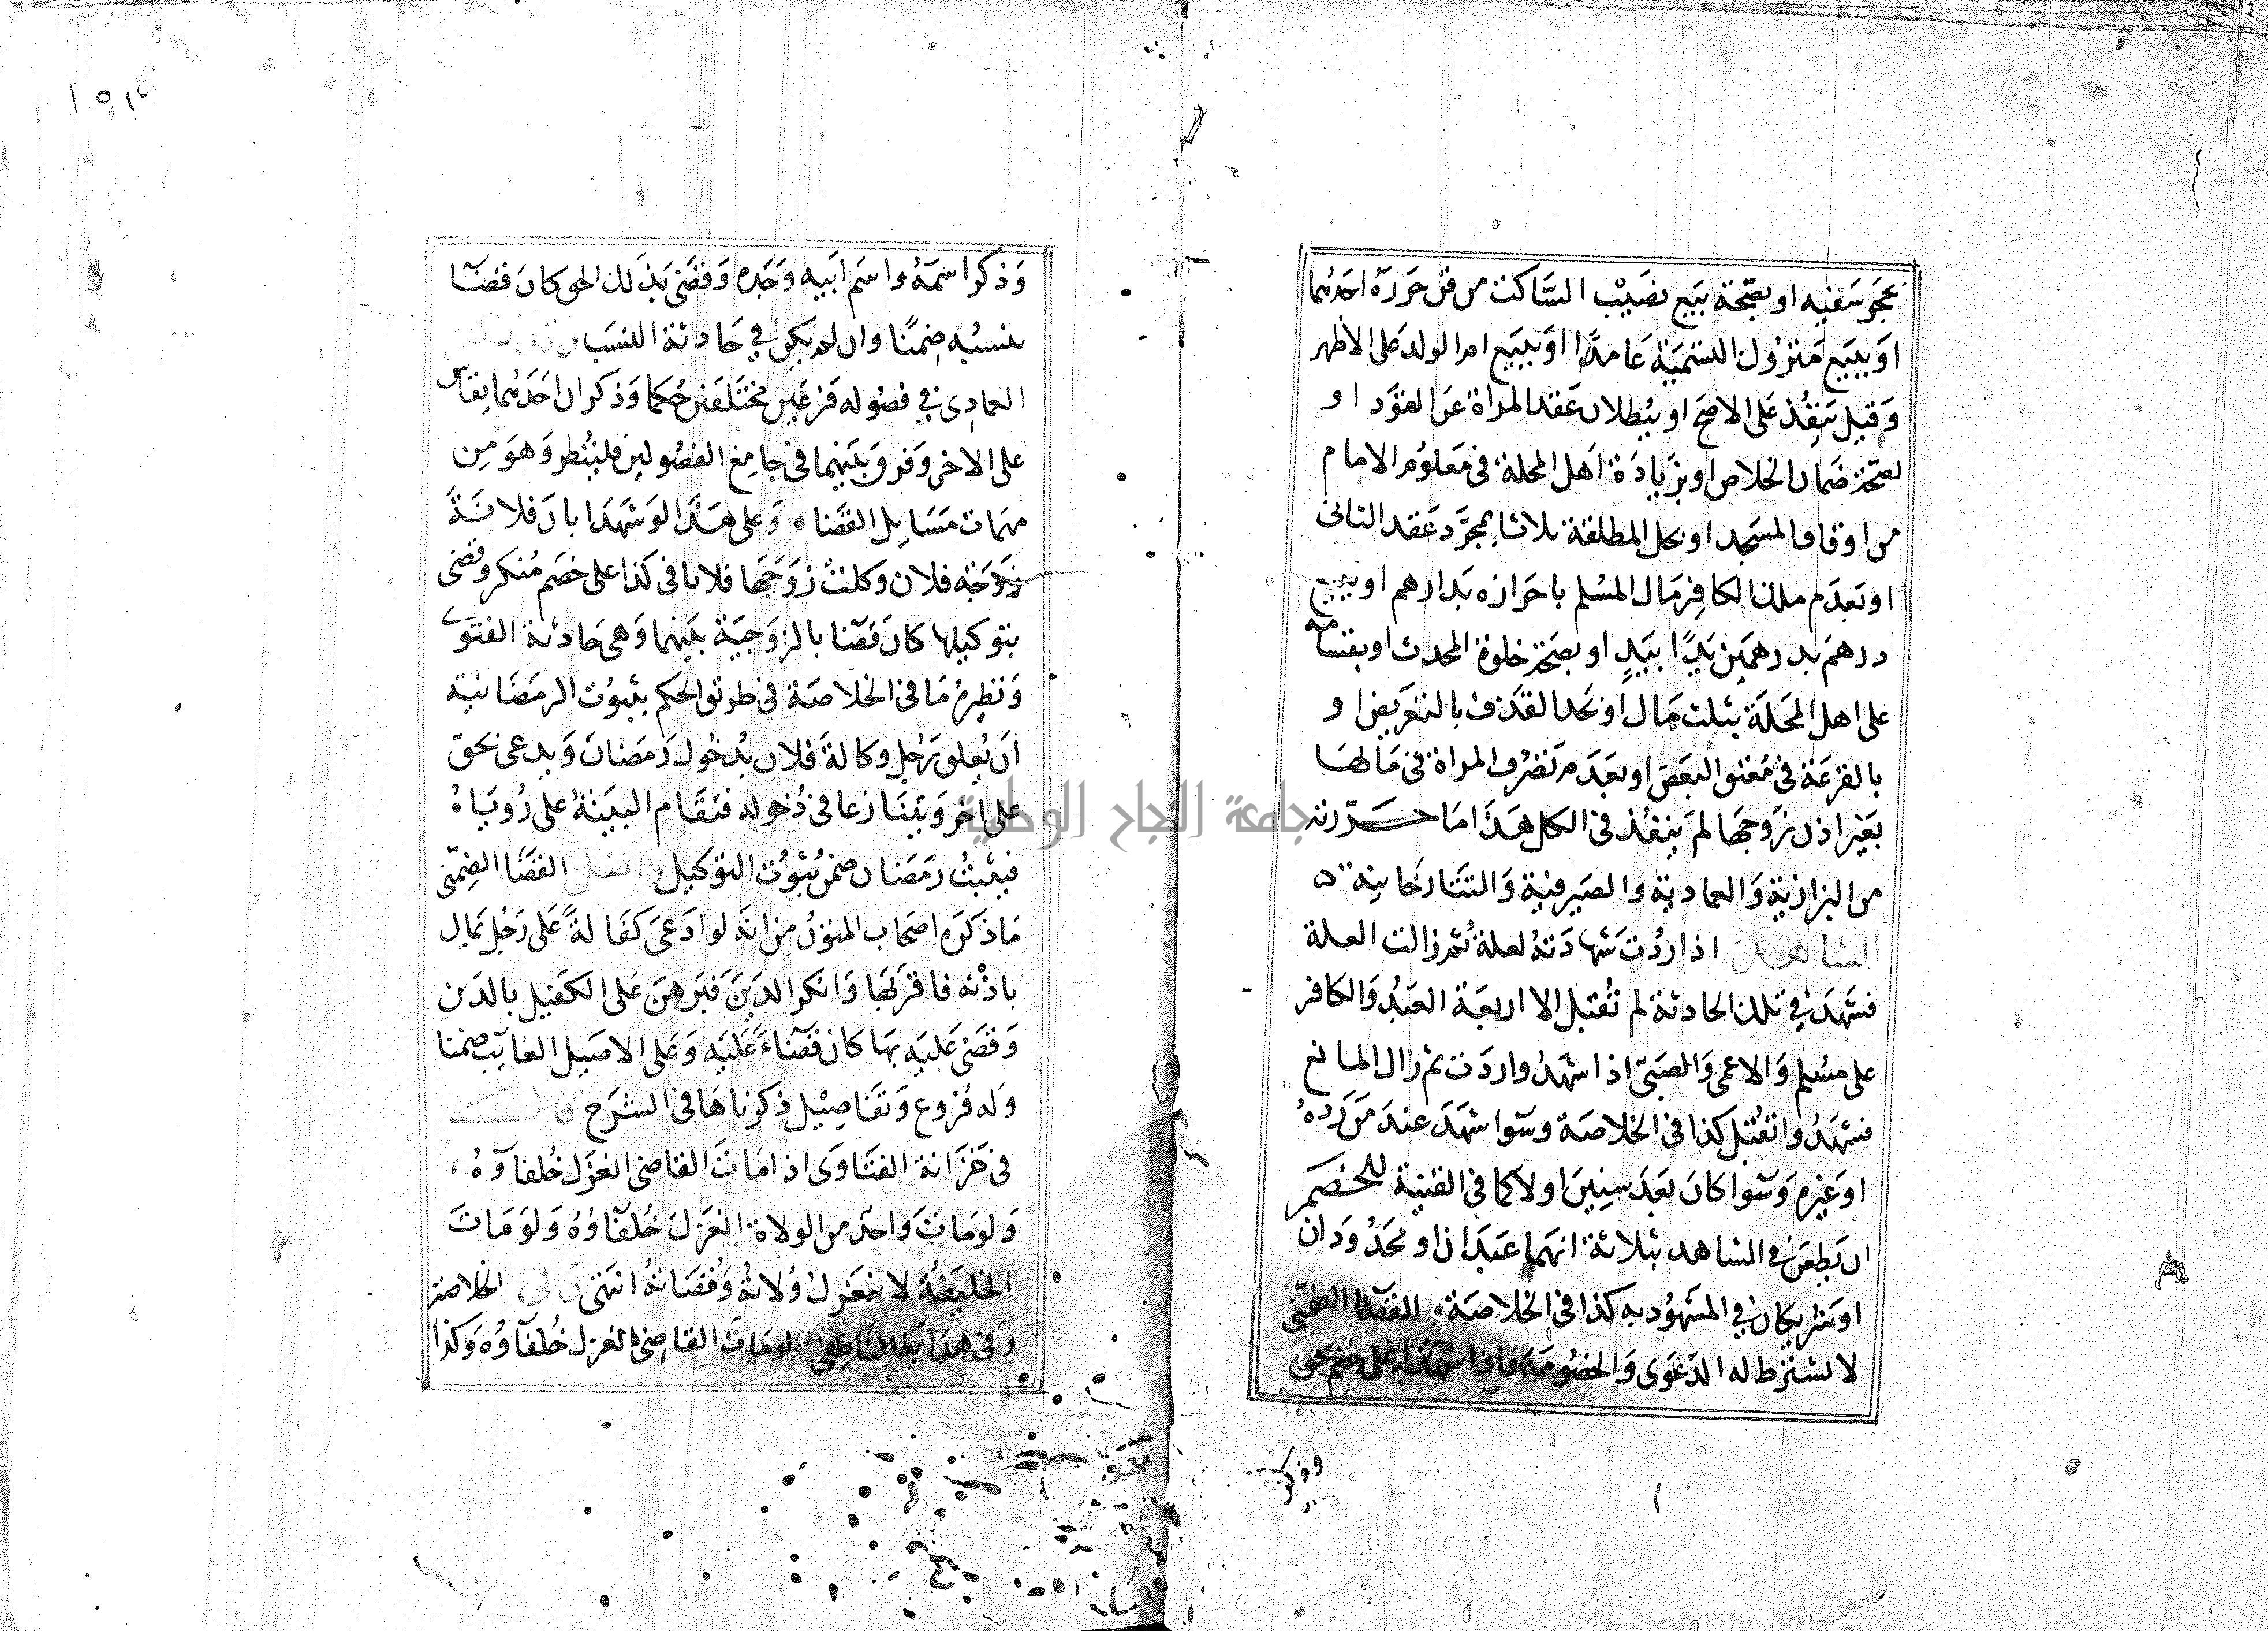 بحجر سفيه او بصحة بيع نصيب الساكت من قن حرره احدهما
او ببيع متروك التسمية عامدا او ببيع ام الولد على الاظهر
وقيل ينفذ على الاصح او ببطلان عقد المراة عن القود او
لصحة ضمان الخلاص او بزيادة اهل المحلة في معلوم الامام
من اوقاف المسجد او بحل المطلقة ثلاثا بمجرد عقد الثاني
او بعدم ملك الكافر مال المسلم باحرازه بدارهم او ببيع
درهم بدرهمين يدا بيد او بصحة خلوة المحدث او بقسامة
على اهل المحلة بثلث مال او بحد القذف بالتعريض او
بالقرعة في معتق البعض او بعدم تصرف المراة في مالها
بغير اذن زوجها لم ينفذ في الكل هذا ما حررته
من البزازية والعمادية والصيرفية والتتارخانيه
الشاهد اذا ردت شهادته لعلة ثم زالت العلة
فشهد في تلك الحادثة لم تقبل الا اربعة العبد والكافر
على مسلم والاعمى والصبي اذا شهدوا وردت ثم زال المانع
فشهدوا تقبل كذا في الخلاصة وسوا شهد عند من رده
او غيره وسوا كان بعد سنين او لا كما في القنية للخصم
ان يطعن في الشاهد بثلاثة انهما عبدان او محدودان
او شريكان في المشهود به كذا في الخلاصة القضا الضمني
لا تشترط له الدعوى والخصومة فاذا شهدا على خصم بحق
وذكر
وذكرا سمه واسم ابيه وجده وقضى بذلك الحق كان قضا
بنسبه ضمنا وان لم يكن في حادثة النسب
العمادي في فصوله فرعين مختلفين حكما وذكر ان احدهما يقاس
على الاخر وفرق بينهما في جامع الفصولين فلينظر وهو من
مهمات مسايل القضا وعلى هذا لو شهدا بان فلانة
زوجة فلان وكلت زوجها فلانا في كذا على خصم منكر وقضى
بتوكيلها كان قضا بالزوجية بينهما وهي حادثة الفتوى
ونظيره ما في الخلاصة في طريق الحكم بثبوت الرمضانية
ان يعلق رجل وكالة فلان بدخول رمضان ويدعى بحق
على اخر ويتنازعا في دخوله فتقام البينة على روياه
فيثبت رمضان ضمن ثبوت التوكيل واصل القضا الضمني
ما ذكره اصحاب المتون من انه لو ادعى كفالة على رجل بمال
باذنه فاقر بها وانكر الدين فبرهن على الكفيل بالدين
وقضى عليه بها كان قضاء عليه وعلى الاصيل الغايب ضمنا
وله فروع وتفاصيل ذكرناها في الشرح
في خزانة الفتاوى اذا مات القاضي انعزل خلفاوه
ولو مات واحد من الولاة انعزل خلفاوه ولو مات
الخليفة لا تنعزل ولاته وقضاته انتهى وفي الخلاصة
وفي هداية الناطفي لو مات القاضي انعزل خلفاوه وكذا
جامعة النجاح الوطنية